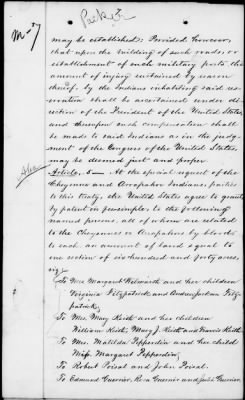 No 7
Parker
may be established: Provided however,
that upon the building of such roads, or
establishment of such military posts, the
amount of injury sustained by reason
thereof by the Indians inhabiting said res-
ervation shall be ascertained under di-
rection of the President of the United States,
and thereupon such compensation shall
be made to said Indians as in the judg-
ment of the Congress of the United States
may be deemed just and proper
Article. 5 — At the special request of the
Cheyenne and Arrapahoe Indians, parties
to this treaty, the United States agree to grant
by patent in fee simple, to the following
named persons, all of whom are related
to the Cheyennes or Arrapahoes by blood,
to each, an amount of land equal to
one section of six hundred and forty acres,
viz:
To Mrs Margaret Wilmarth and her children
Virginia Fitzpatrick, and Andrew Jackson Fitz-
patrick,
To Mrs. Mary Keith and her children
William Keith, Mary J. Keith and Francis Keith
To Mrs. Matilda Pepperdin and her child
Miss. Margaret Pepperdin,
To Robert Poisal and John Poisal.
To Edmund Guerrier, Rosa Guerrier and Julia Guerrier